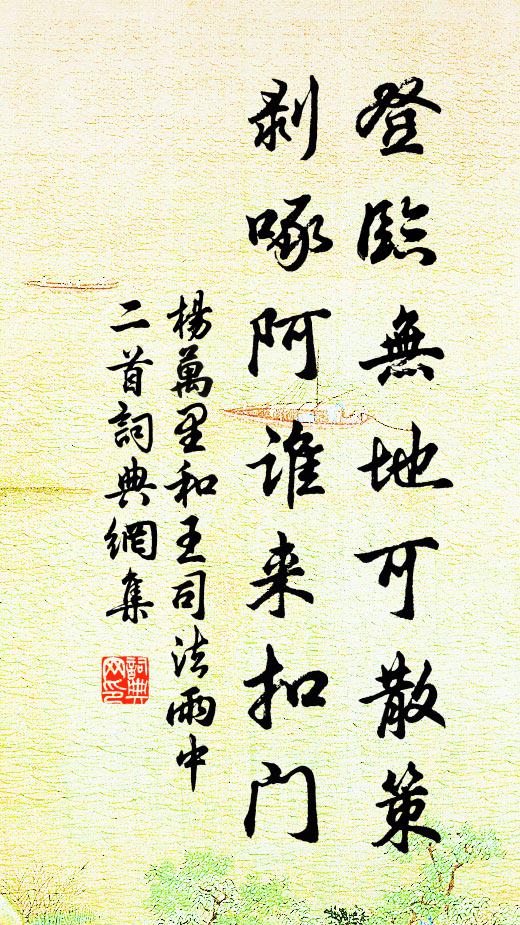 登臨無地可散策
剥啄阿誰来扣门
楊萬里和王司法雨中
二首詞典網集
詞典网印